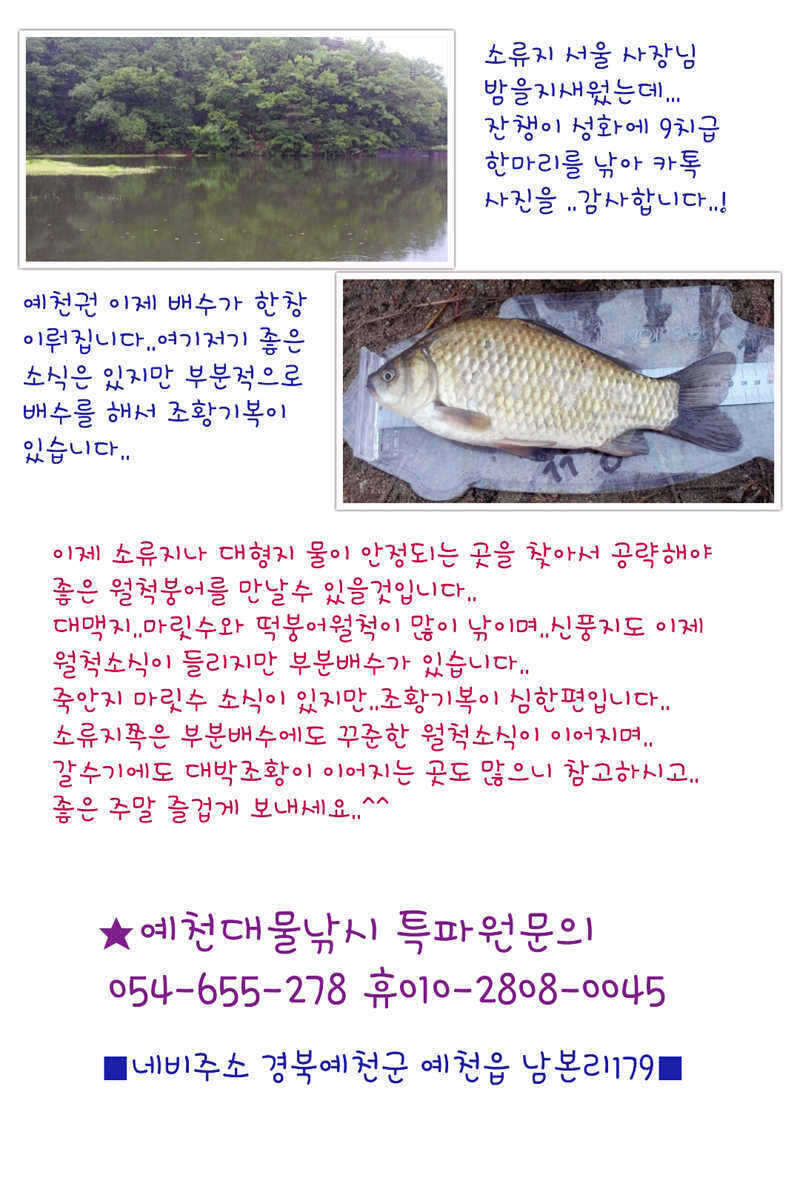 소류지 서울 사장님
밤을지새웠는데...
잔챙이 성화에 9치급
한마리를 낚아 카톡
사진을 ..감사합니다..!
예천권 이제 배수가 한창
이뤄집니다..여기저기 좋은
소식은 있지만 부분적으로
배수를 해서 조황기복이
있습니다..
이제 소류지나 대형지 물이 안정되는 곳을 찾아서 공략해야
좋은 월척붕어를 만날수 있을것입니다..
대맥지..마릿수와 떡붕어월척이 많이 낚이며..신풍지도 이제
월척소식이 들리지만 부분배수가 있습니다..
죽안지 마릿수 소식이 있지만..조황기복이 심한편입니다..
소류지쪽은 부분배수에도 꾸준한 월척소식이 이어지며..
갈수기에도 대박조황이 이어지는 곳도 많으니 참고하시고..
좋은 주말 즐겁게 보내세요..^^
★예천대물낚시 특파원문의
054-655-278 휴010-2808-0045
■네비주소 경북예천군 예천읍 남본리179■